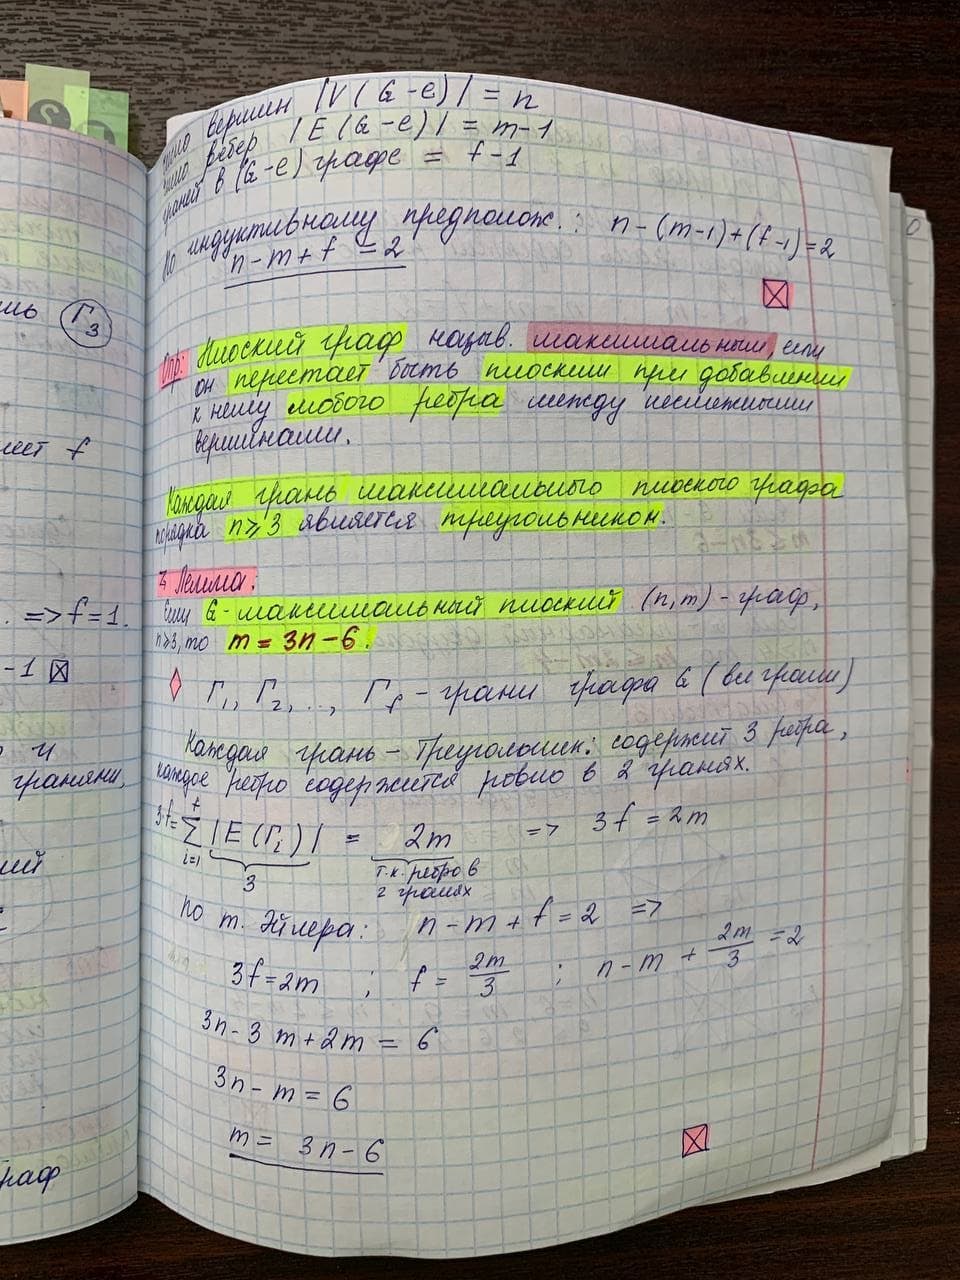 Γ₃
еет f
=> f=1.
-1 ⊠
гранями,
раф
число вершин |V(G-e)| = n
число рёбер |E(G-e)| = m-1
граней в (G-e) графе = f-1
По индуктивному предполож.: n-(m-1)+(f-1)=2
n-m+f=2
⊠
Опр: Плоский граф назыв. максимальным, если
он перестает быть плоским при добавлении
к нему любого ребра между несмежными
вершинами.
Каждая грань максимального плоского графа
порядка n≥3 является треугольником.
Лемма.
Если G-максимальный плоский (n,m)-граф,
n≥3, то m=3n-6.
♢ Γ₁, Γ₂, ..., Γf - грани графа G (все грани)
Каждая грань - треугольник: содержит 3 ребра,
каждое ребро содержится ровно в 2 гранях.
3·f = ∑ᶠᵢ₌₁ |E(Γᵢ)| = 2m => 3f=2m
3 т.к. ребро в
2 гранях
по т. Эйлера: n-m+f=2 =>
3f=2m ; f = 2m/3 ; n-m + 2m/3 = 2
3n-3m+2m = 6
3n-m=6
m= 3n-6
⊠